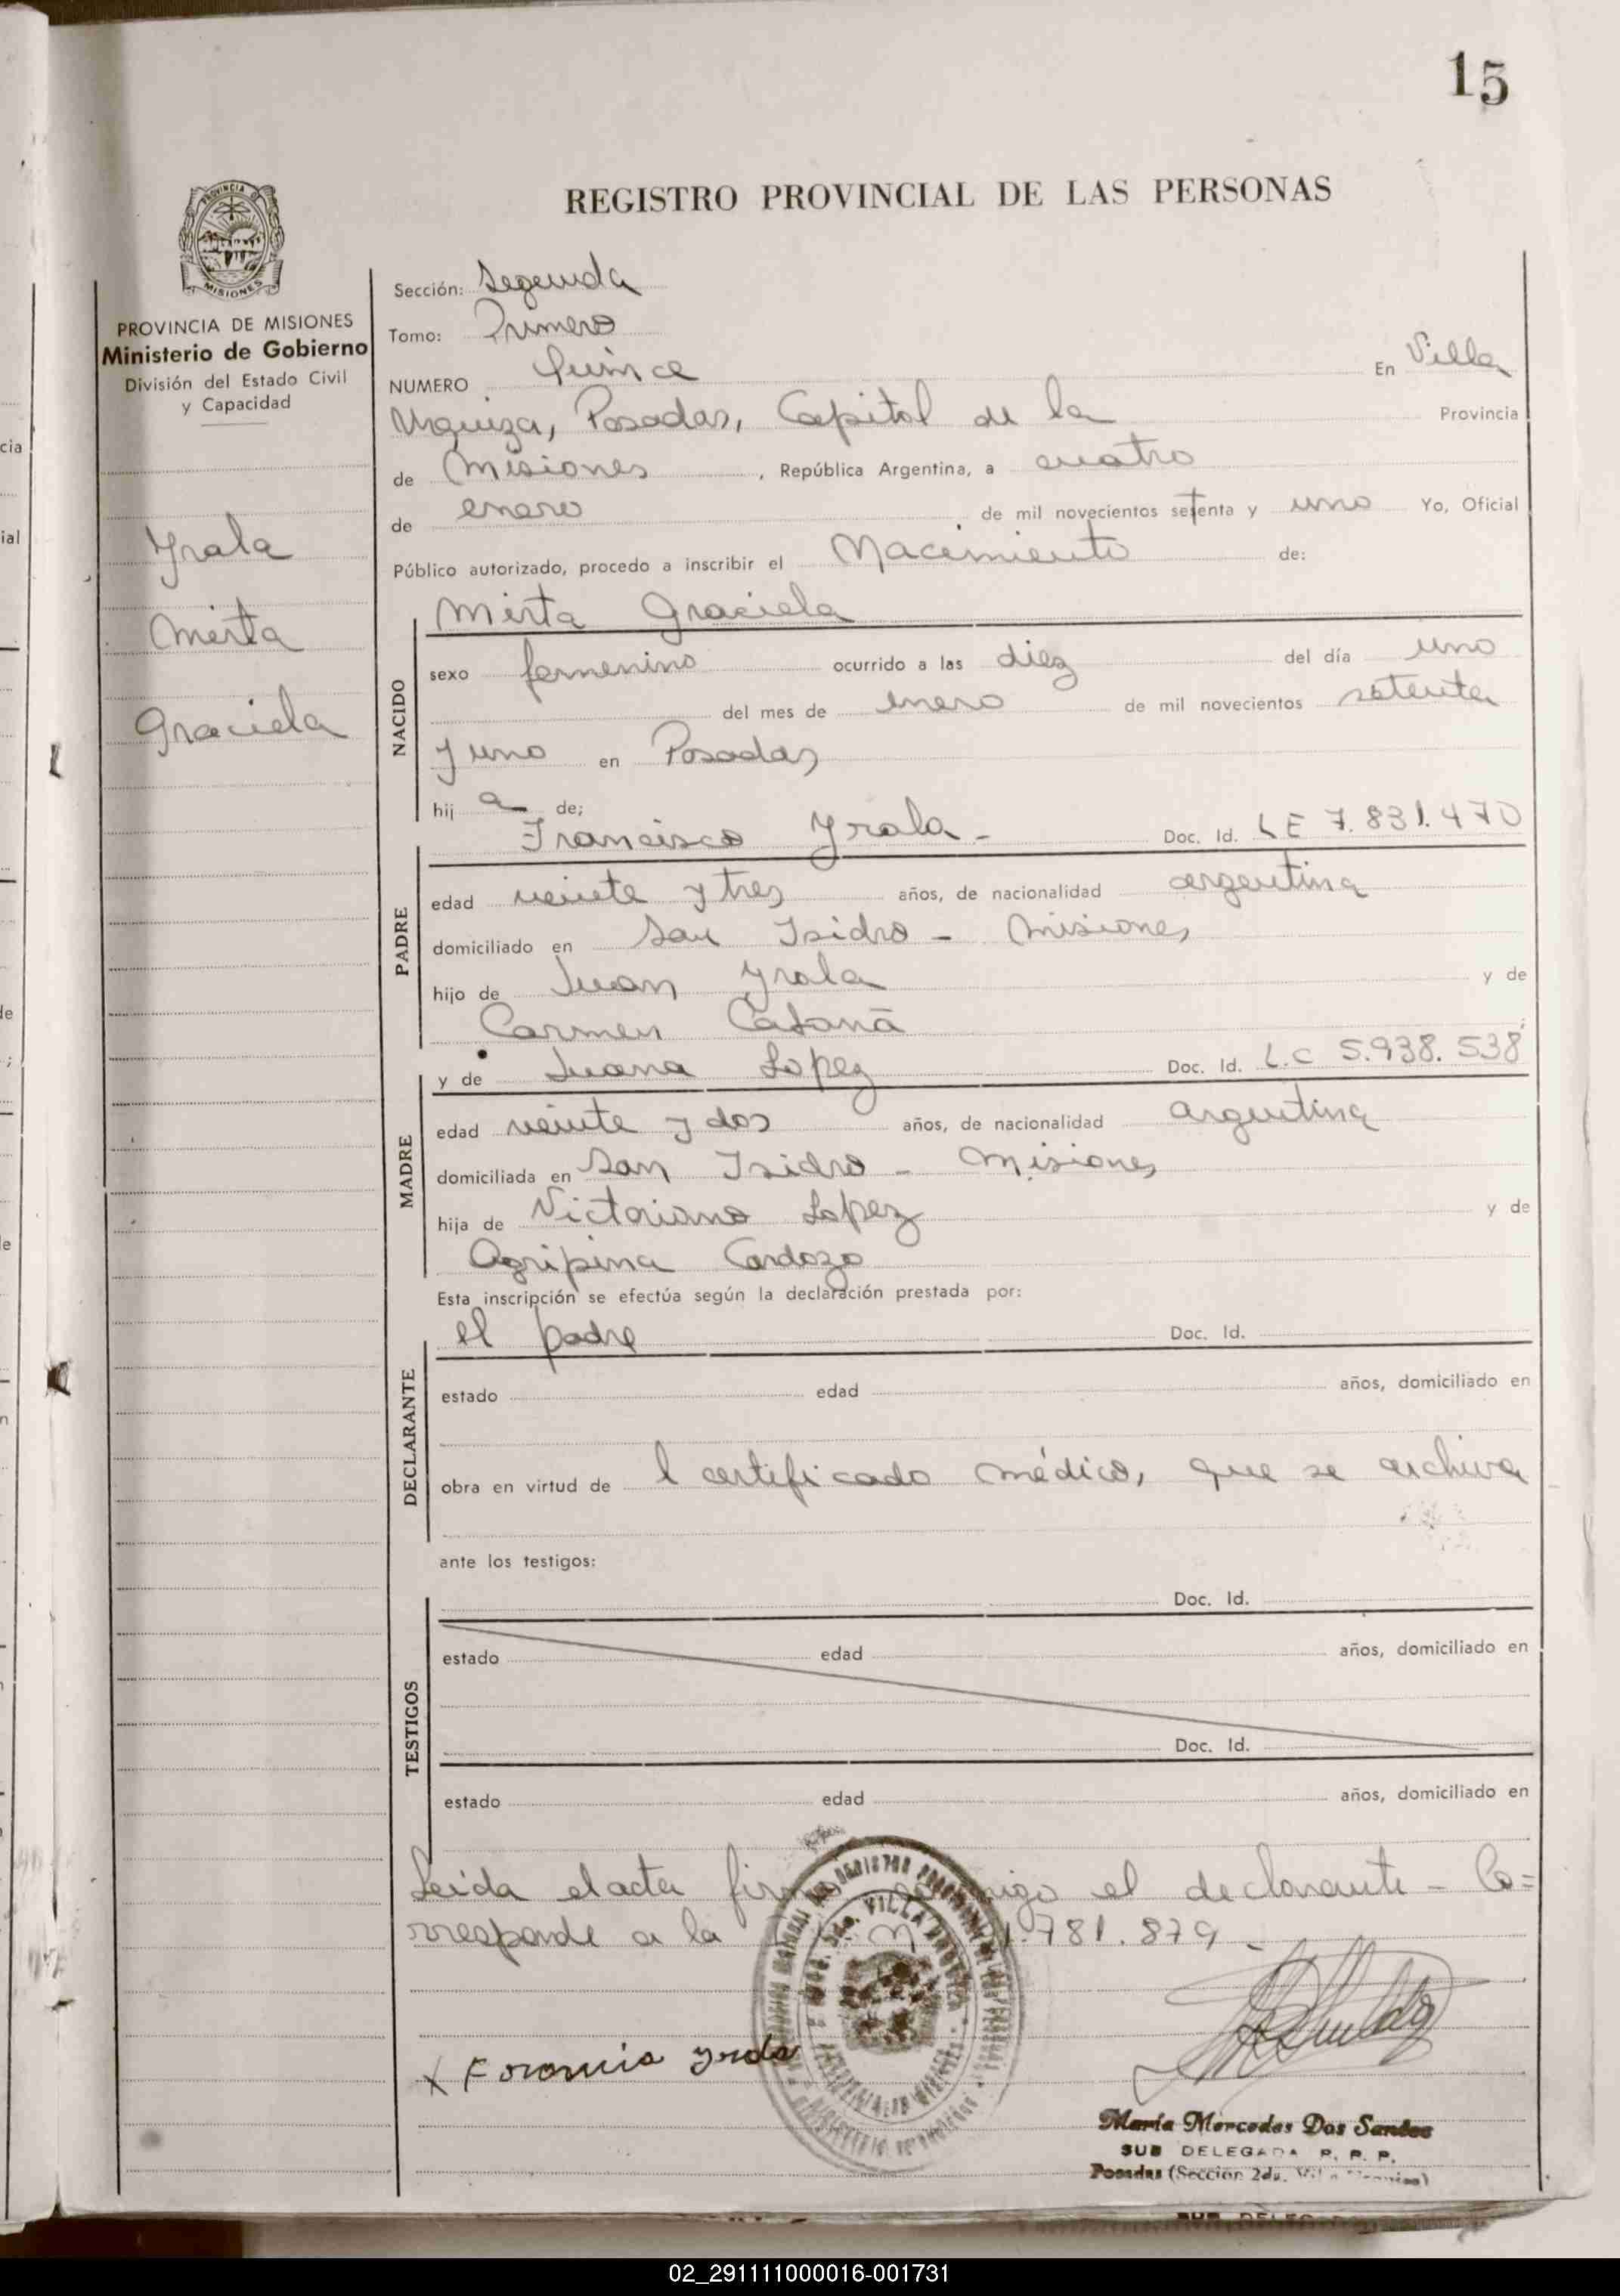 15
REGISTRO PROVINCIAL DE LAS PERSONAS
PROVINCIA DE MISIONES
Ministerio de Gobierno
División del Estado Civil
y Capacidad
Yrala
Mirta
Graciela
Sección: Segunda
Tomo: Primero
NUMERO Quince En Villa
Urquiza, Posadas, Capital de la Provincia
de Misiones, República Argentina, a cuatro
de enero de mil novecientos setenta y uno Yo, Oficial
Público autorizado, procedo a inscribir el Nacimiento de:
Mirta Graciela
NACIDO
sexo femenino ocurrido a las diez del día uno
del mes de enero de mil novecientos setenta
y uno en Posadas
hij a de;
Francisco Yrala - Doc. Id. LE 7.831.470
PADRE
edad veinte y tres años, de nacionalidad argentina
domiciliado en San Isidro - Misiones
hijo de Juan Yrala y de
Carmen
y de Juana Lopez Doc. Id. L.C 5.938.538
MADRE
edad veinte y dos años, de nacionalidad argentina
domiciliada en San Isidro - Misiones
hija de Victoriano Lopez y de
Agripina Cardozo
Esta inscripción se efectúa según la declaración prestada por:
el padre Doc. Id.
DECLARANTE
estado edad años, domiciliado en
obra en virtud de l certificado médico, que se archiva
ante los testigos:
Doc. Id.
TESTIGOS
estado edad años, domiciliado en
Doc. Id.
estado edad años, domiciliado en
Leida el acta firma conmigo el declarante - Co=
rresponde a la 1.781.879 -
x Yrala
María Mercedes Dos Santos
SUB DELEGADA R. P. P.
Posadas (Sección 2da. Villa Urquiza)
02_291111000016-001731